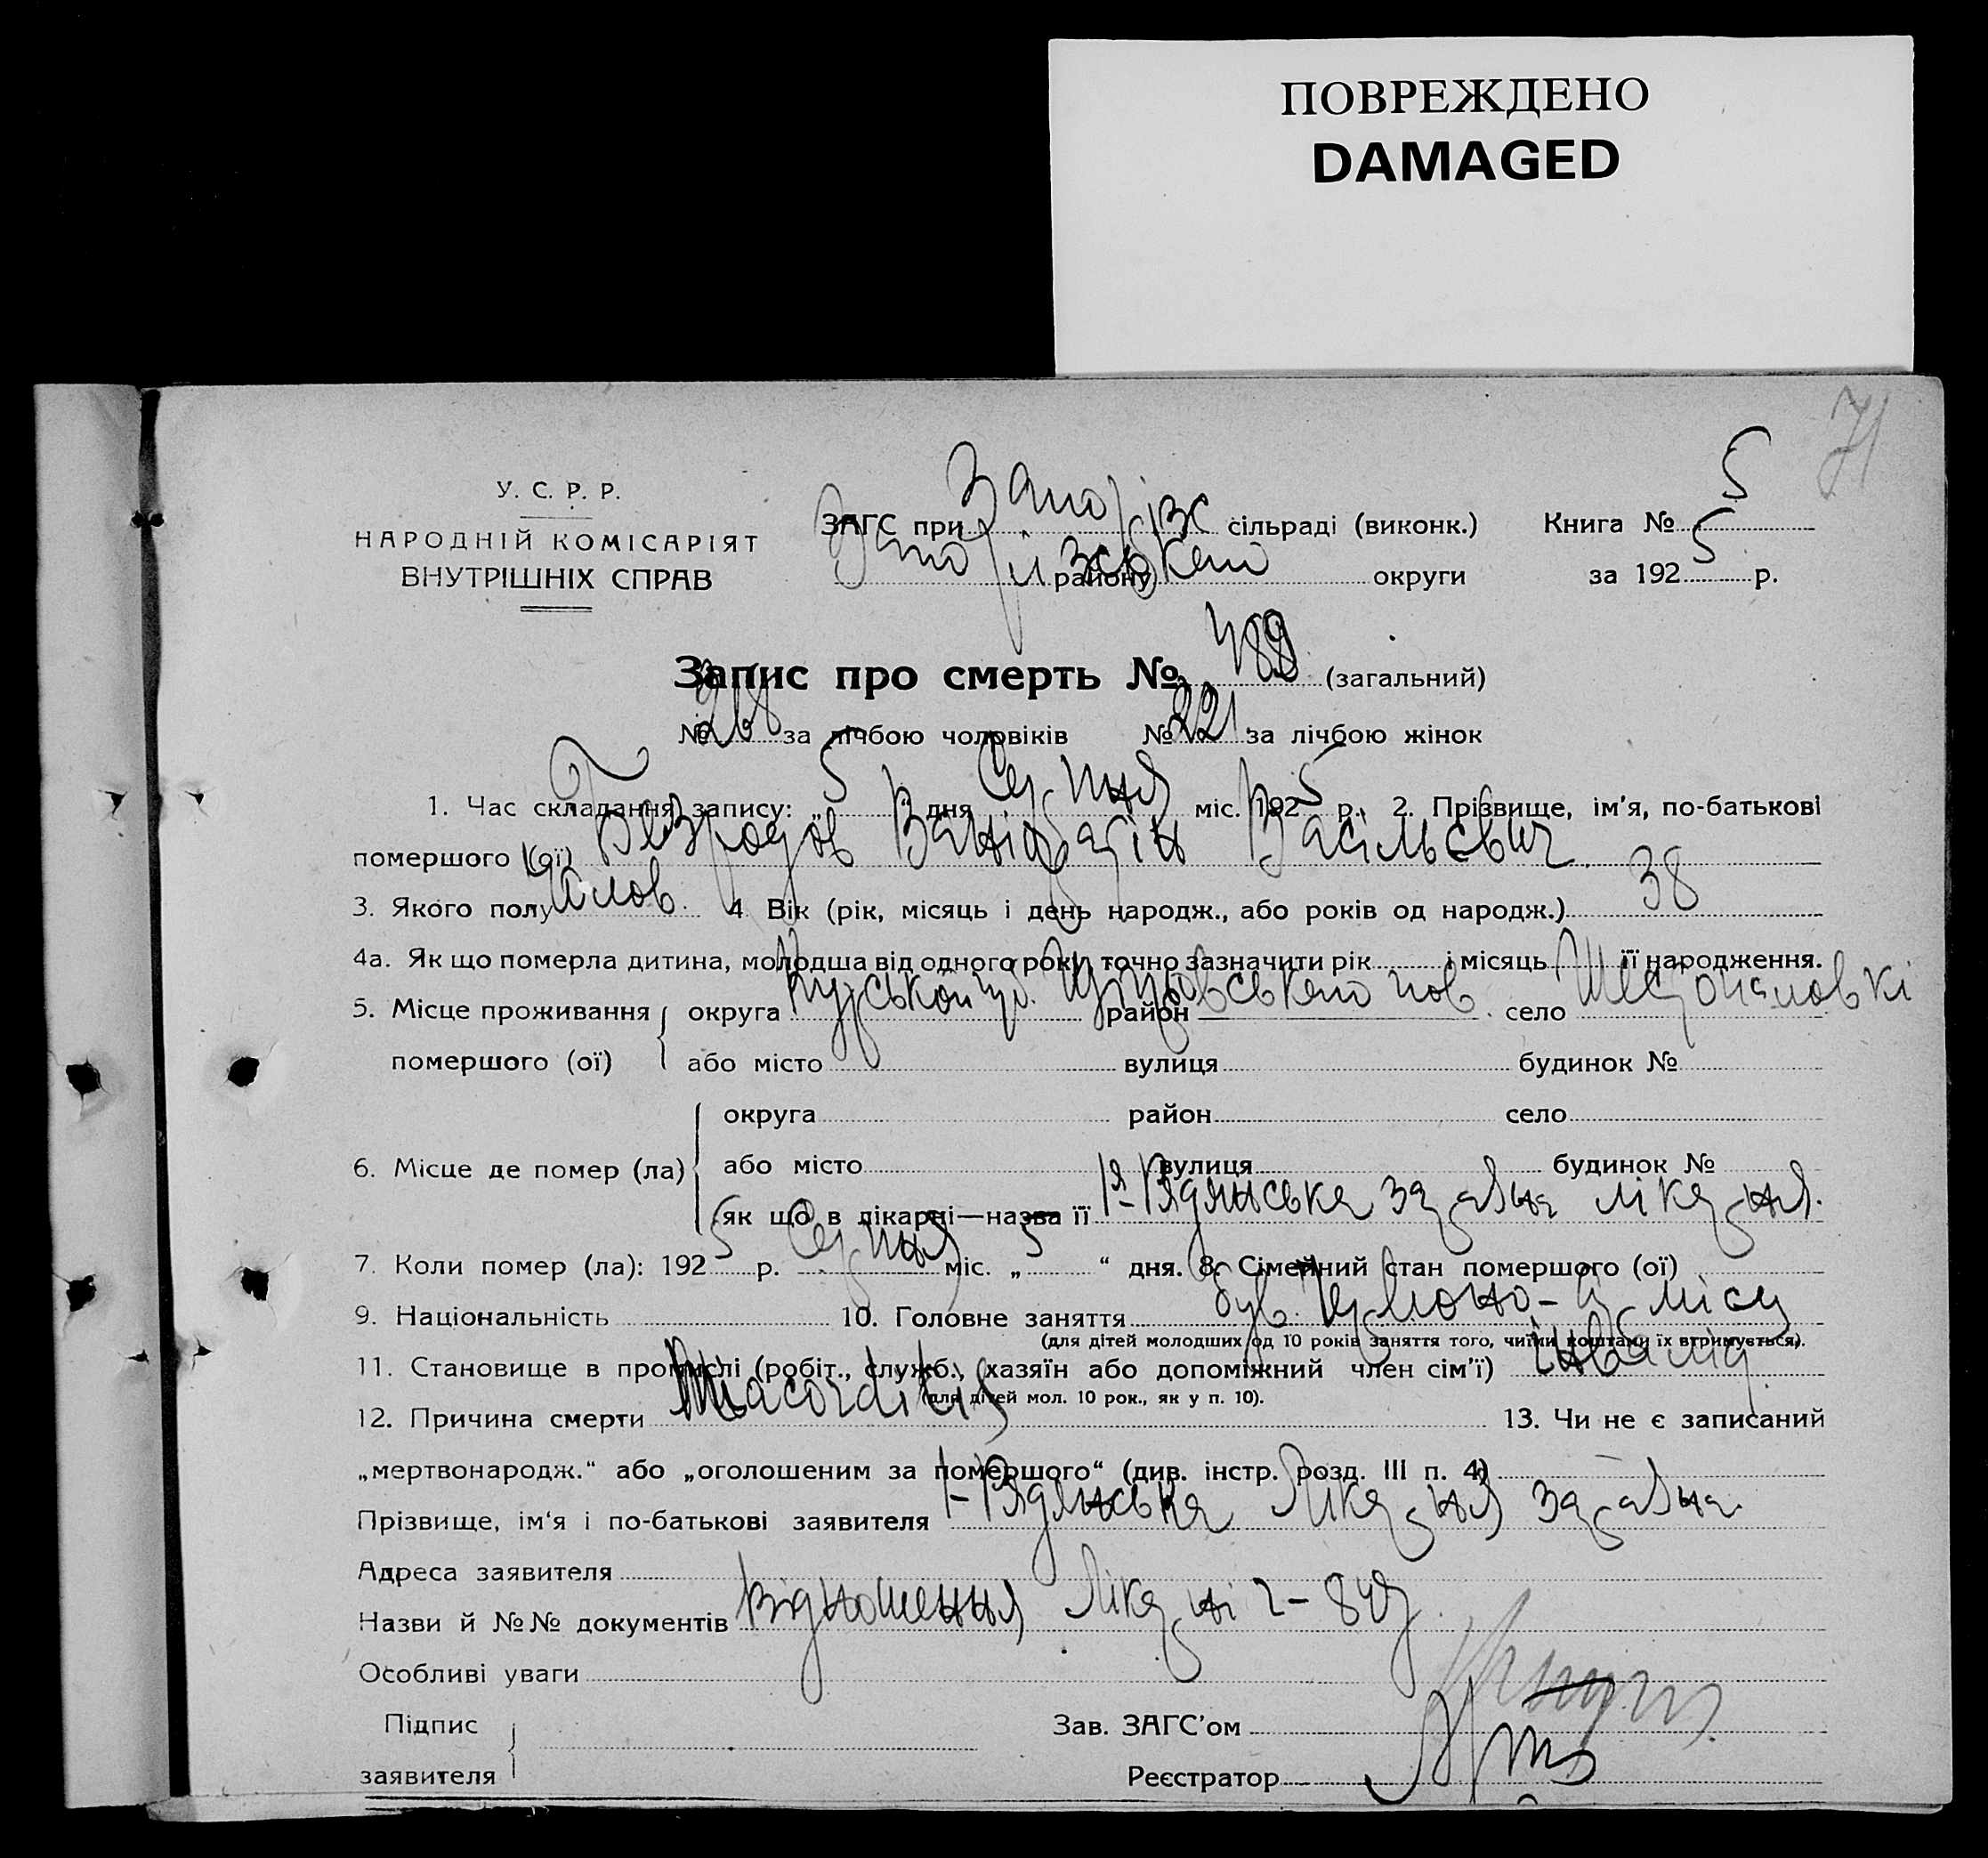 ПОВРЕЖДЕНО
DAMAGED
71
У. С. Р. Р.
НАРОДНІЙ КОМІСАРІЯТ
ВНУТРІШНІХ СПРАВ
ЗАГС при Запорізс сільраді (виконк.) Книга № 5
району Запорізського округи за 1925 р.
Запис про смерть № 489 (загальний)
№ 268 за лічбою чоловіків № 221 за лічбою жінок
1. Час складання запису: „ 5 “ дня Серпня міс. 1925 р. 2. Прізвище, ім'я, по-батькові
помершого (ої) Безродов Васільєвич
3. Якого полу Чолов. 4. Вік (рік, місяць і день народж., або років од народж.) 38
4а. Як що померла дитина, молодша від одного року, точно зазначити рік і місяць її народження.
5. Місце проживання округа Курськой губ. район пов село
помершого (ої) або місто вулиця будинок №
округа район село
6. Місце де помер (ла) або місто вулиця будинок №
як що в лікарні—назва її 1я-Радянська заразна лікарня.
7. Коли помер (ла): 1925 р. Серпня міс. „ 5 “ дня. 8. Сімейний стан помершого (ої)
9. Національність 10. Головне заняття був.
(для дітей молодших од 10 років заняття того, чиїми коштами їх втримується).
11. Становище в промислі (робіт., служб., хазяїн або допоміжний член сім'ї) інвалід.
(для дітей мол. 10 рок., як у п. 10).
12. Причина смерти Miacorditis 13. Чи не є записаний
„мертвонародж.“ або „оголошеним за помершого“ (див. інстр. розд. III п. 4)
Прізвище, ім'я і по-батькові заявителя 1-Радянська Лікарня заразна
Адреса заявителя
Назви й №№ документів відношення Лікарні
Особливі уваги
Підпис Зав. ЗАГС'ом
заявителя Реєстратор